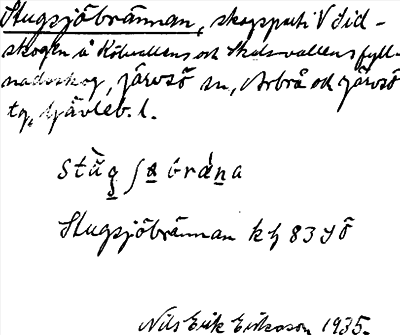 Stugsjöbrännan, skogsputi V did-
skogen å Kölvallens och Skålsvallens fyll-
nadsskog, Järvsö sn, Arbrå och Järvsö
tg, Gävleb. l.
Stugsjöbrännan kf 83 Jö
Nils Erik Eriksson 1935.